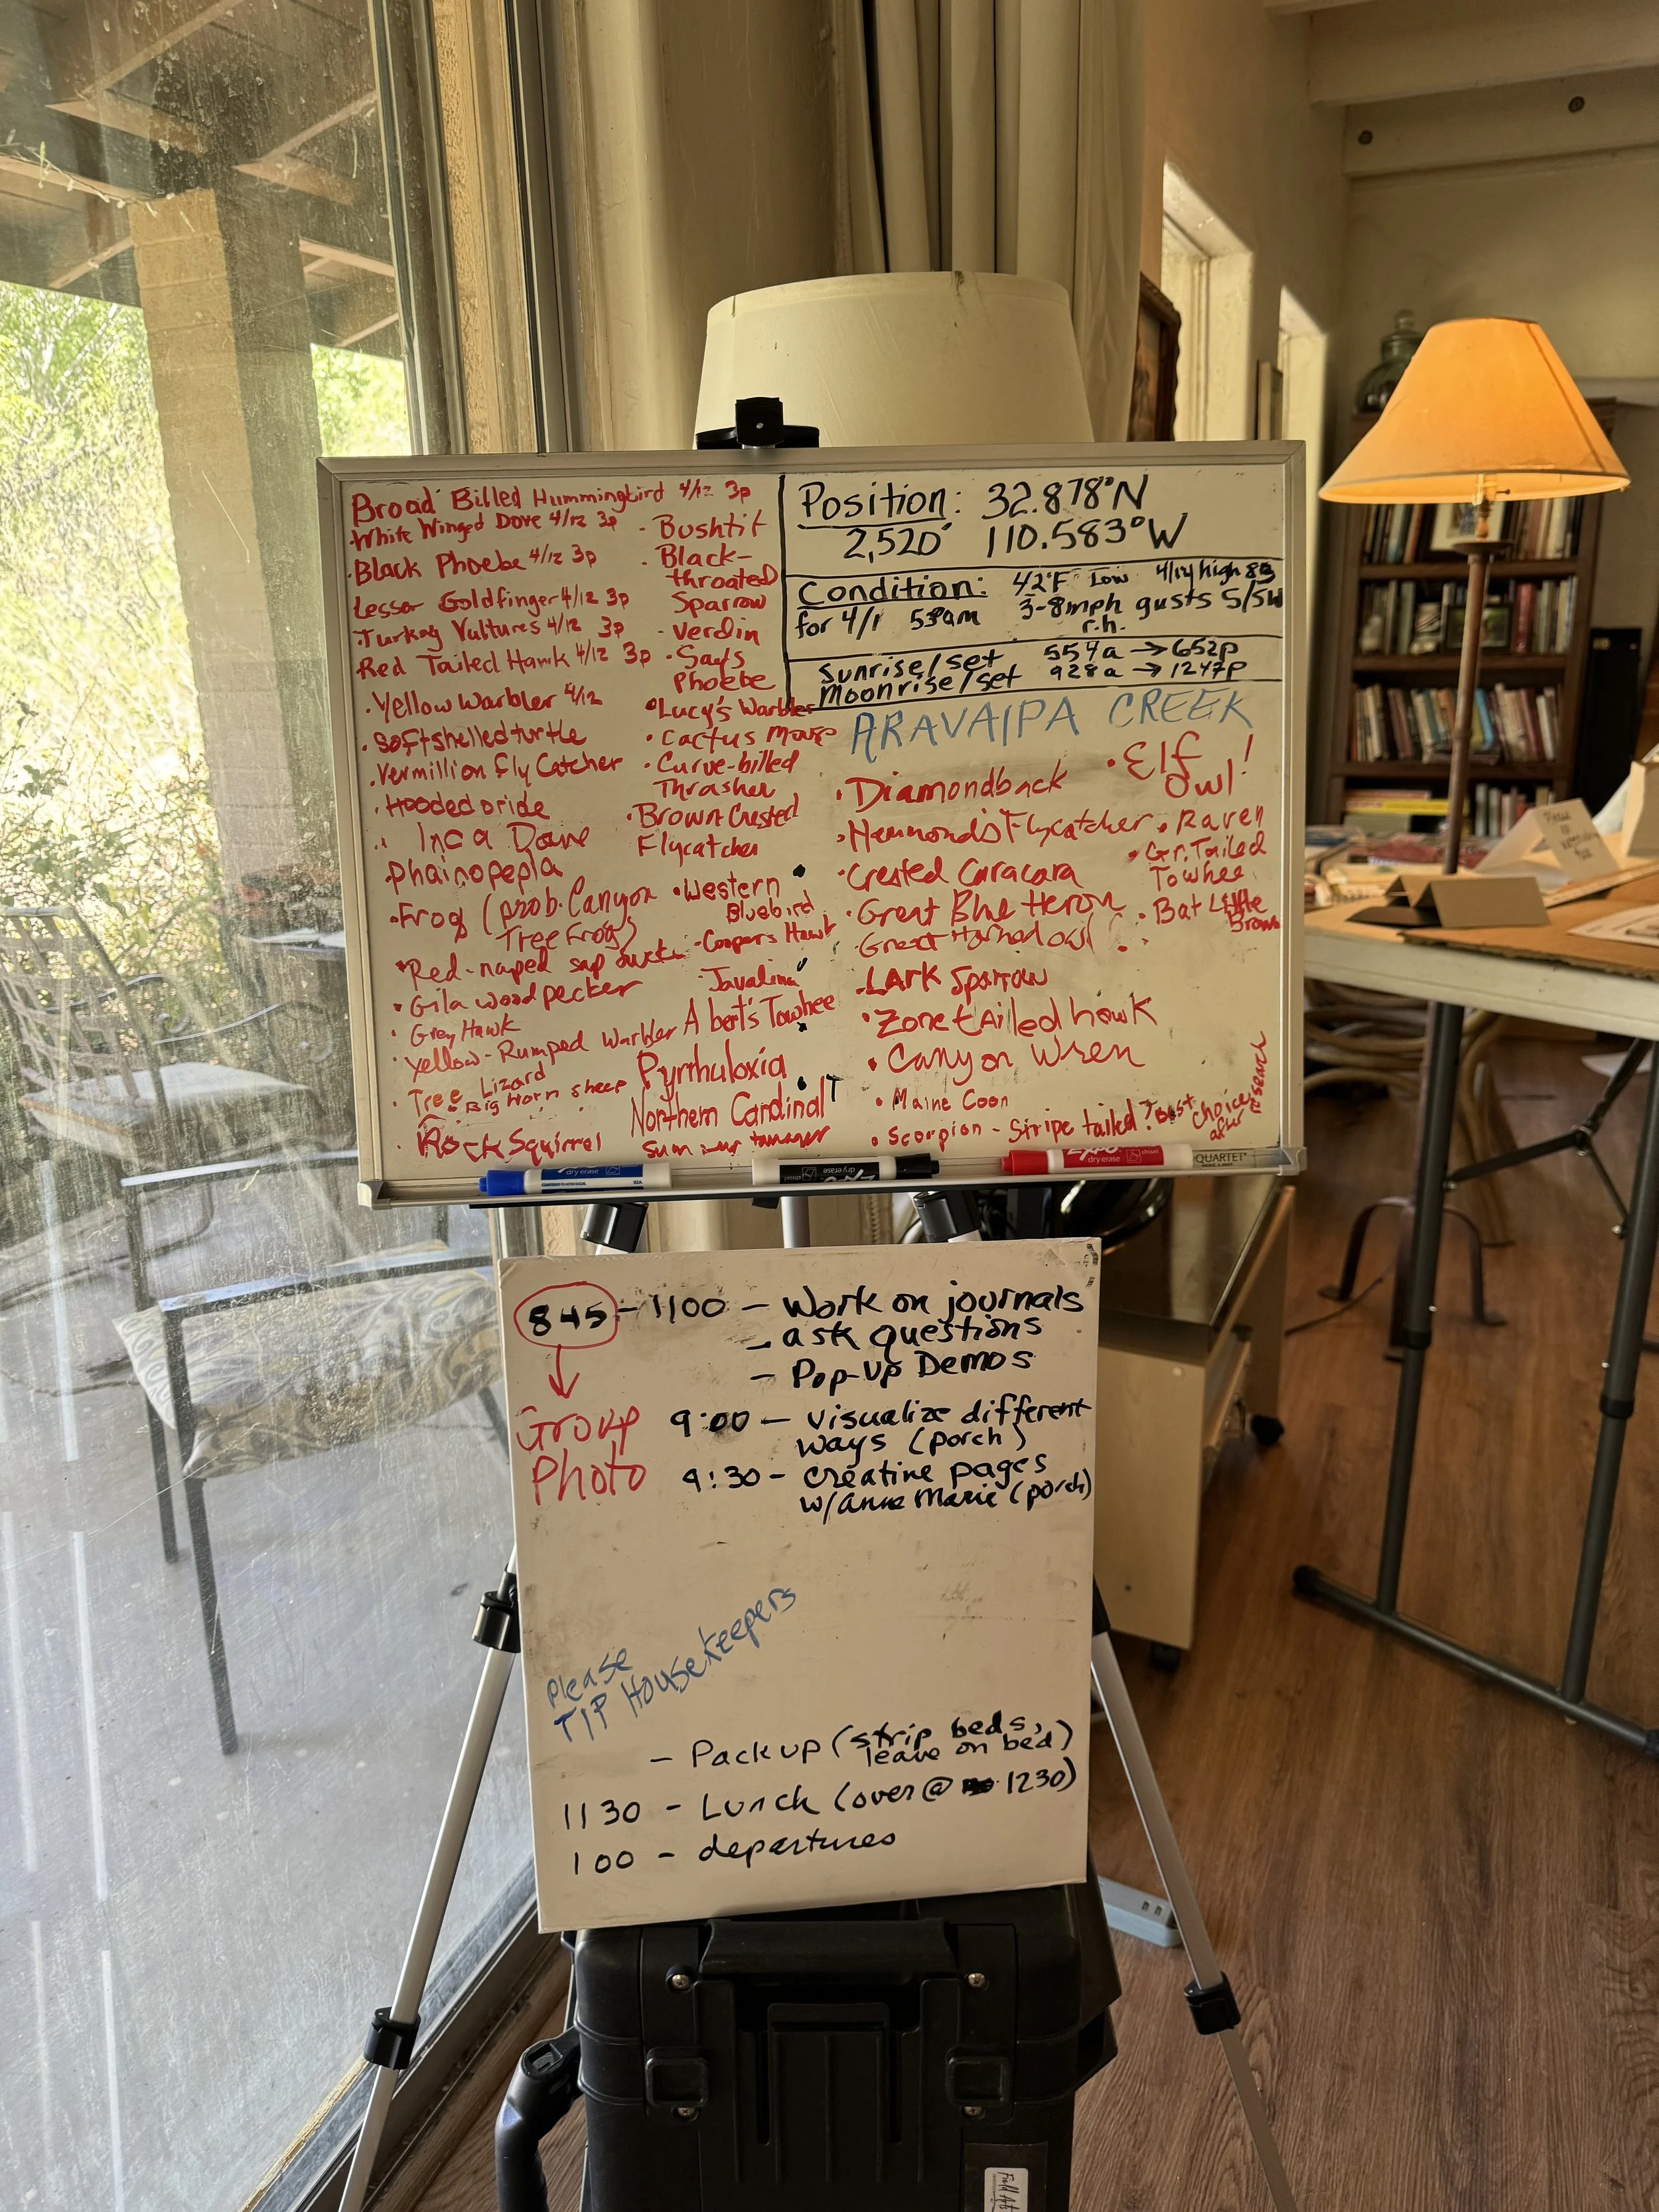 Broad Billed Hummingbird 4/12 3p
·White Winged Dove 4/12 3p
·Black Phoebe 4/12 3p
Lesser Goldfinger 4/12 3p
·Turkey Vultures 4/12 3p
Red Tailed Hawk 4/12 3p
·Yellow Warbler 4/12
·Softshelled turtle
·Vermillion Fly Catcher
·Hooded oride
·Inca Dove
·Phainopepla
·Frog (prob. Canyon
Tree Frog)
·Red-naped sap
·Gila woodpecker
·Grey Hawk
·Yellow-Rumped Warbler
·Tree Lizard
·Big Horn sheep
·Rock Squirrel
·Bushtit
·Black-
throated
Sparrow
·Verdin
·Says
Phoebe
·Lucy's Warbler
·Cactus Mouse
·Curve-billed
Thrasher
·Brown Crested
Flycatcher
·Western
Bluebird
·Coopers Hawk
Javalina
Abert's Towhee
Pyrrhuloxia
Northern Cardinal
Summer tanager
Position: 32.878°N
2,520' 110.583°W
Condition: 42°F Low 4/14 high 83
for 4/1 530am 3-8mph gusts S/SW
r.h.
Sunrise/set 554a → 652p
Moonrise/set 928a → 1247p
ARAVAIPA CREEK
·Diamondback
·Hammond's Flycatcher
·Crested Caracara
·Great Blue Heron
·Great Horned owl
·LARK Sparrow
·Zone tailed hawk
·Canyon Wren
·Maine Coon
·Scorpion - Stripe tailed? Best choice after research
·Elf
Owl!
·Raven
·Gr. Tailed
Towhee
·Bat Little
Brown
dry erase
EXPO
dry erase
chisel
QUARTET
845 - 1100 - Work on journals
- ask questions
- Pop-Up Demos
Group
Photo
9:00 - visualize different
ways (porch)
9:30 - creative pages
w/ Anne Marie (porch)
Please
TIP Housekeepers
- Pack up (strip beds,
leave on bed)
1130 - Lunch (over @ 1230)
100 - departures